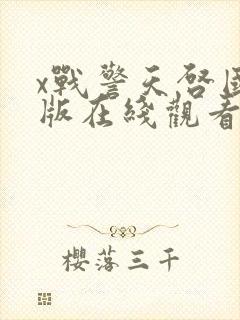 x戰警天啓國
版在綫觀看
櫻落三千